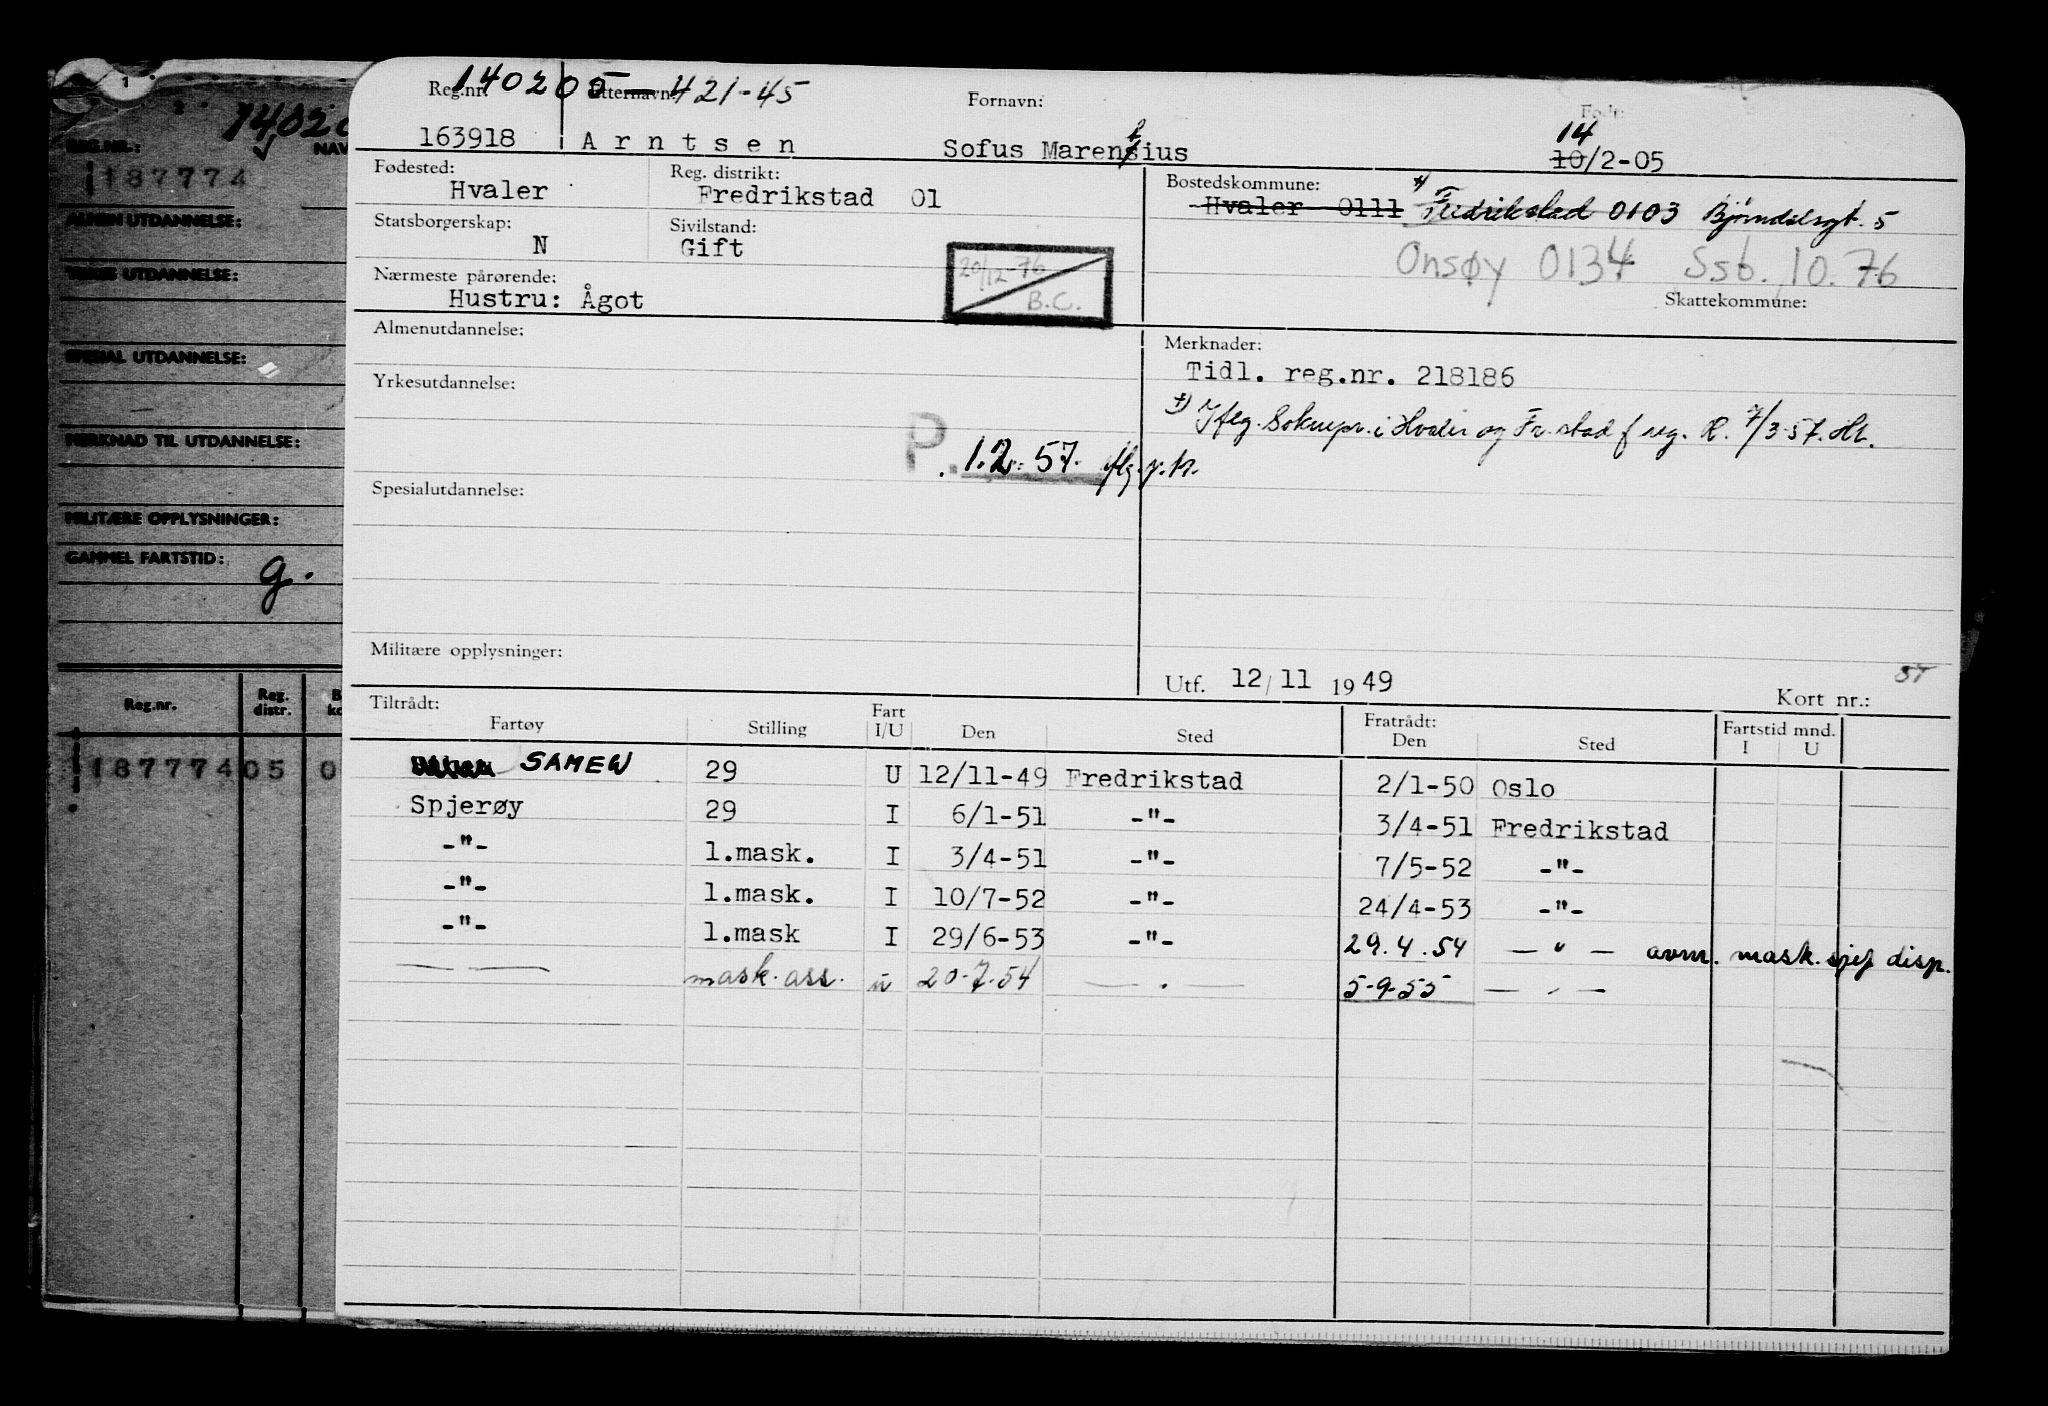 1
14020
REG.NR.:
NAV
187774
ALMEN UTDANNELSE:
YRKES UTDANNELSE:
SPESIAL UTDANNELSE:
MERKNAD TIL UTDANNELSE:
MILITÆRE OPPLYSNINGER:
GAMMEL FARTSTID:
g.
Reg.nr.
Reg. distr.
187774 05 0
140205-421-45
Reg.nr. Etternavn: Fornavn: Født:
163918 Arntsen Sofus Marensius 14
10/2-05
Fødested: Reg. distrikt: Bostedskommune:
Hvaler Fredrikstad 01 Hvaler 0111 Fredrikstad 0103 Bjørndalsgt. 5
Statsborgerskap: Sivilstand:
N Gift Onsøy 0134 Ssb. 10.76
Nærmeste pårørende: 20/12-76 Skattekommune:
Hustru: Ågot B.C.
Almenutdannelse: Merknader:
Tidl. reg.nr. 218186
Yrkesutdannelse:
Iflg. Soknepr. i Hvaler og Fr.stad f reg. R. 7/3-57. Ht.
P. 1.2.57. iflg.
Spesialutdannelse:
Militære opplysninger:
Utf. 12/11 1949 Kort nr.:
Tiltrådt: Fratrådt: Fartstid mnd.
Fartøy Stilling Fart I/U Den Sted Den Sted I U
SAMEW 29 U 12/11-49 Fredrikstad 2/1-50 Oslo
Spjerøy 29 I 6/1-51 -"- 3/4-51 Fredrikstad
-"- 1.mask. I 3/4-51 -"- 7/5-52 -"-
-"- 1.mask. I 10/7-52 -"- 24/4-53 -"-
-"- 1.mask I 29/6-53 -"- 29.4.54 -"- avm. mask.sjef disp.
mask.ass. u 20.7.54 5-9-55